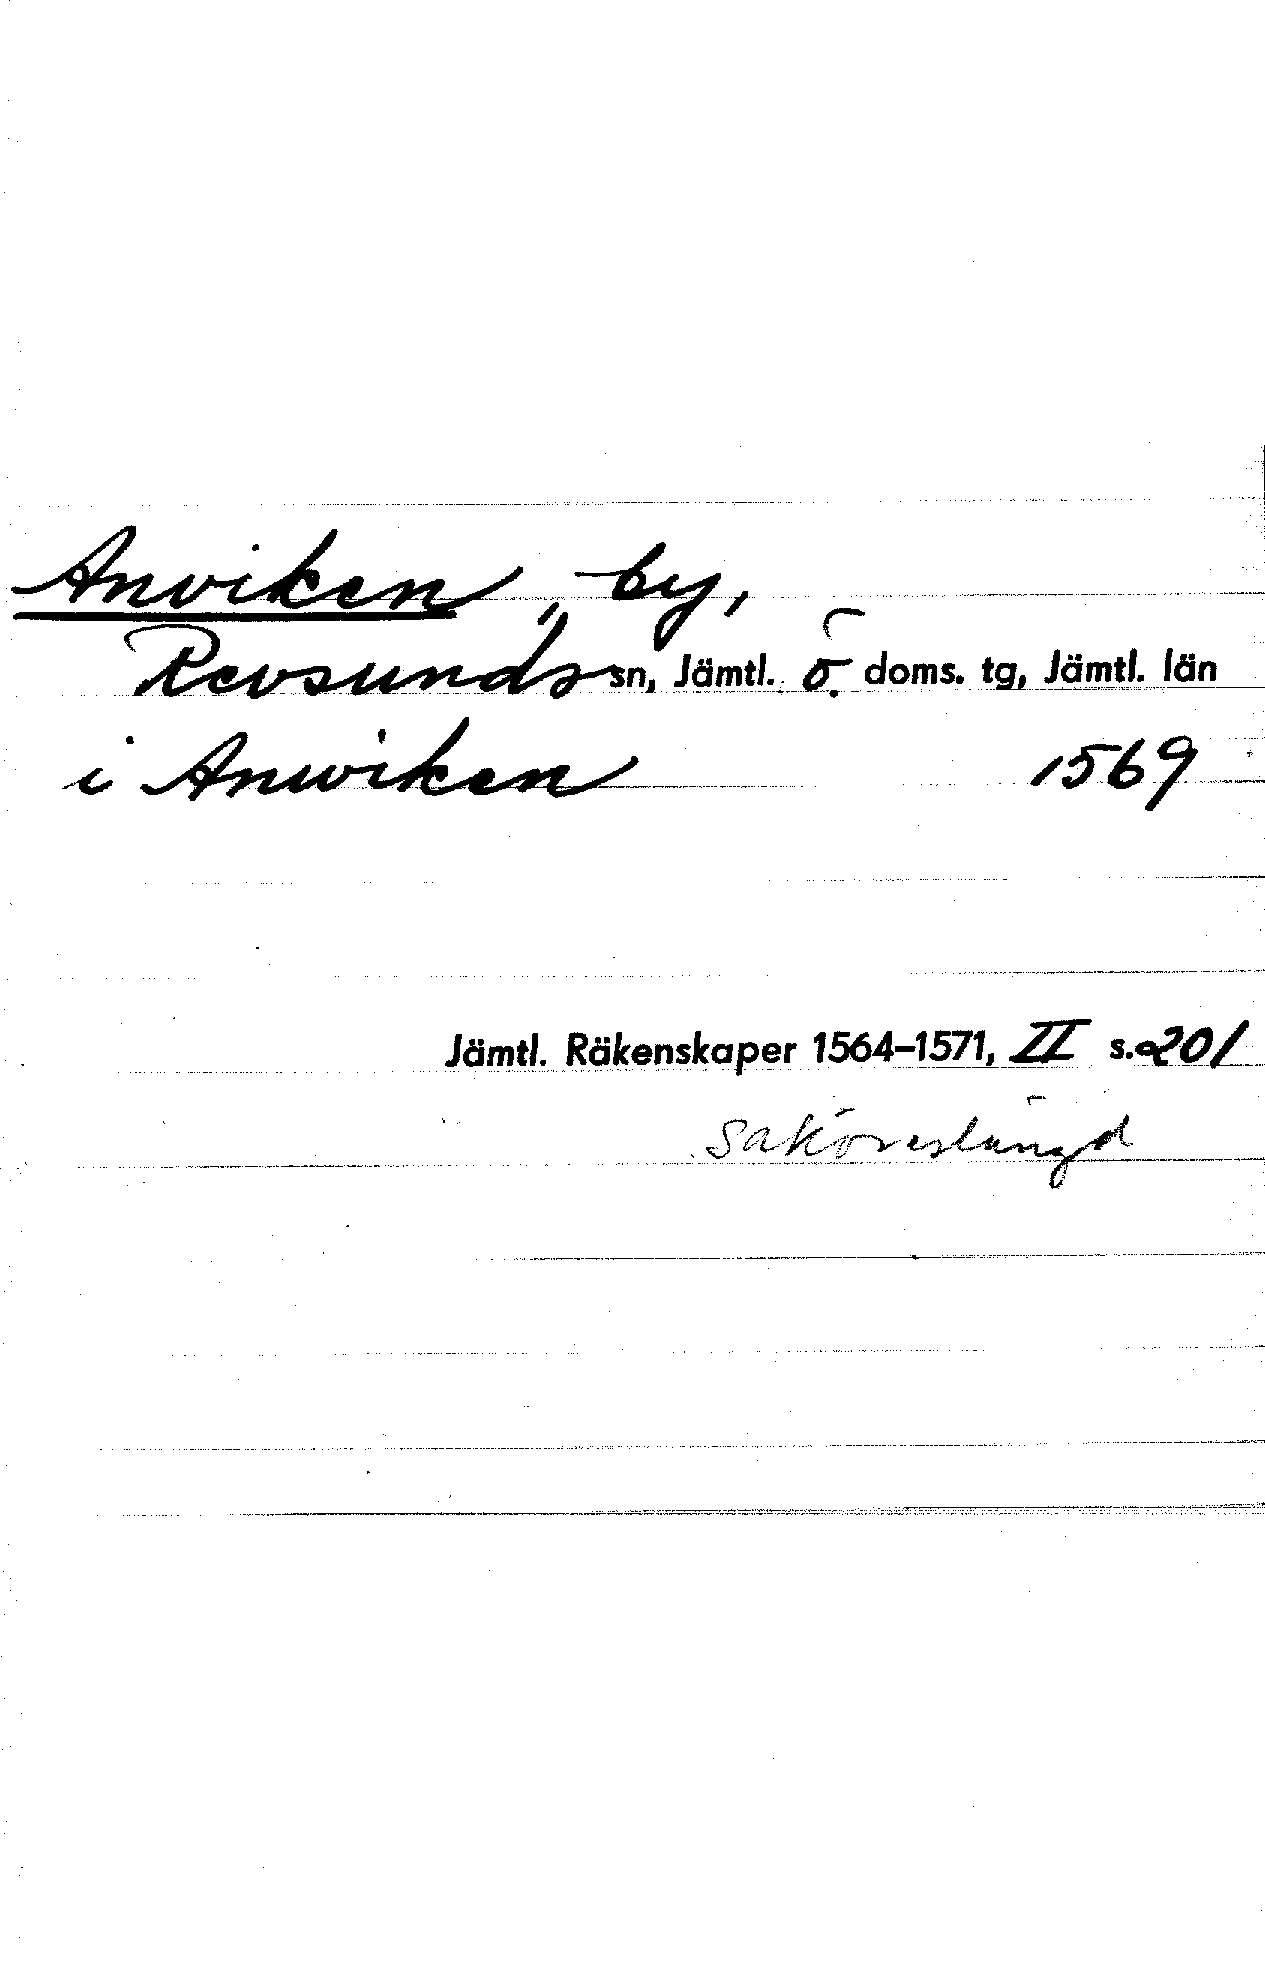 Anviken, by,
Revsunds sn, Jämtl. ö. doms. tg, Jämtl. län
i Anwiken 1569
Jämtl. Räkenskaper 1564–1571, II s. 201
Saköreslängd